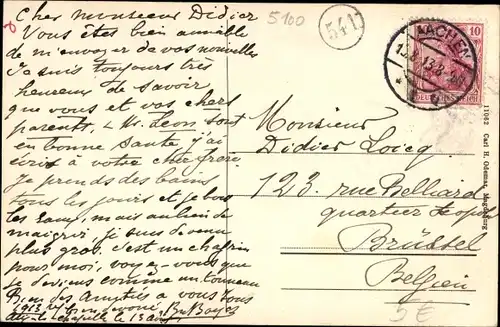 Cher monsieur Didier
Vous êtes bien aimable
de m'envoyer de vos nouvelles
Je suis toujours très
heureux de savoir
que vous et vos chers
parents, & Mr. Léon sont
en bonne santé, j'ai
écrit à votre cher père
Je prends des bains
tous les jours et je bois
les eaux, mais au lieu de
maigrir, je suis devenu
plus gros. c'est un chagrin
pour moi, voyez-vous que
je deviens comme un tonneau
Bien des amitiés à vous tous
1913 votre dévoué
Aix-la-Chapelle le 13 août
5100
541
AACHEN
13.8.13.8-9N
10
DEUTSCHES REICH
Monsieur
Didier Loicq
123 rue Belliard
quartier Léopold
Brüssel
Belgien
5€
11062 Carl H. Odemar, Magdeburg